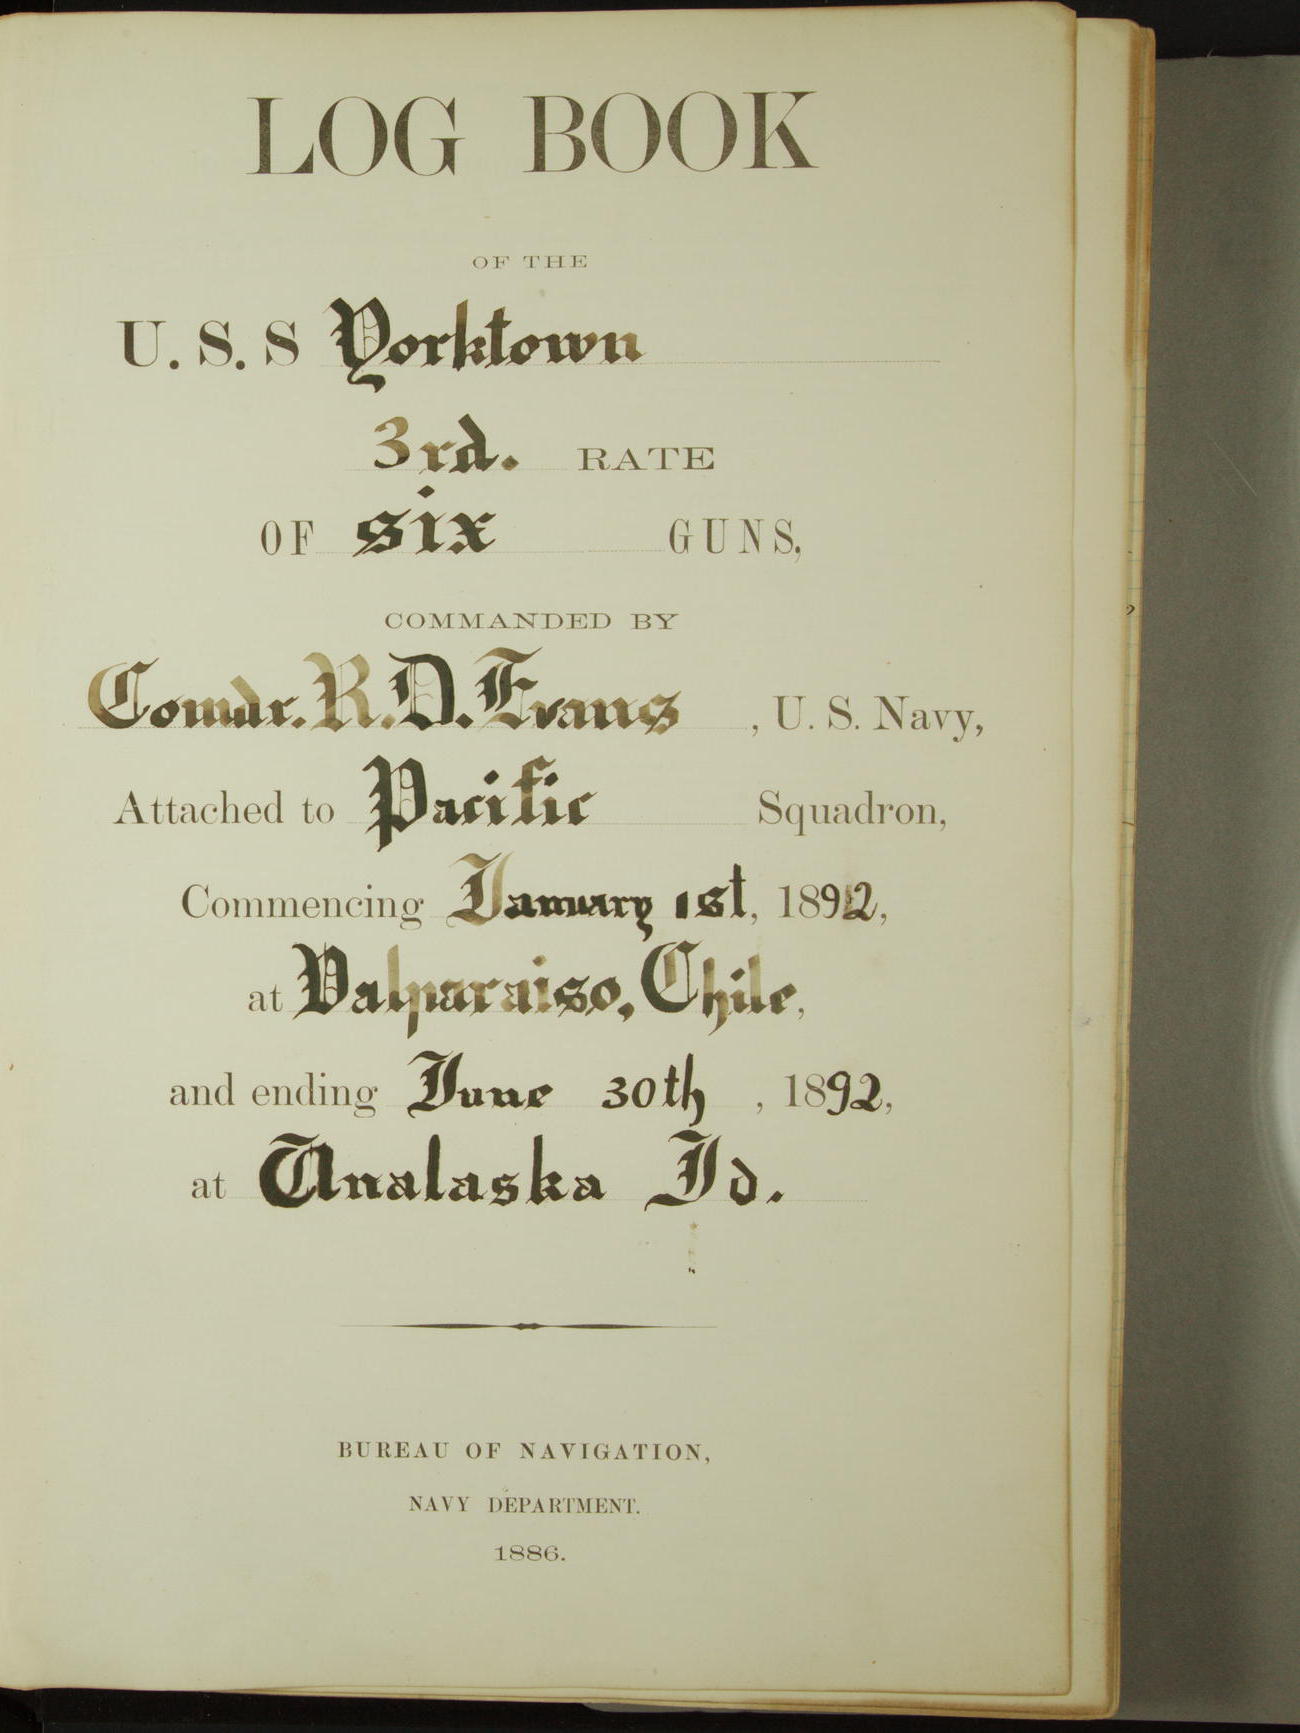 LOG BOOK
OF THE
U. S. S Yorktown
3rd. RATE
OF six GUNS,
COMMANDED BY
Comdr. R. D. Evans, U. S. Navy,
Attached to Pacific Squadron,
Commencing January 1st, 1892,
at Valparaiso, Chile,
and ending June 30th, 1892,
at Unalaska Id.
BUREAU OF NAVIGATION,
NAVY DEPARTMENT.
1886.